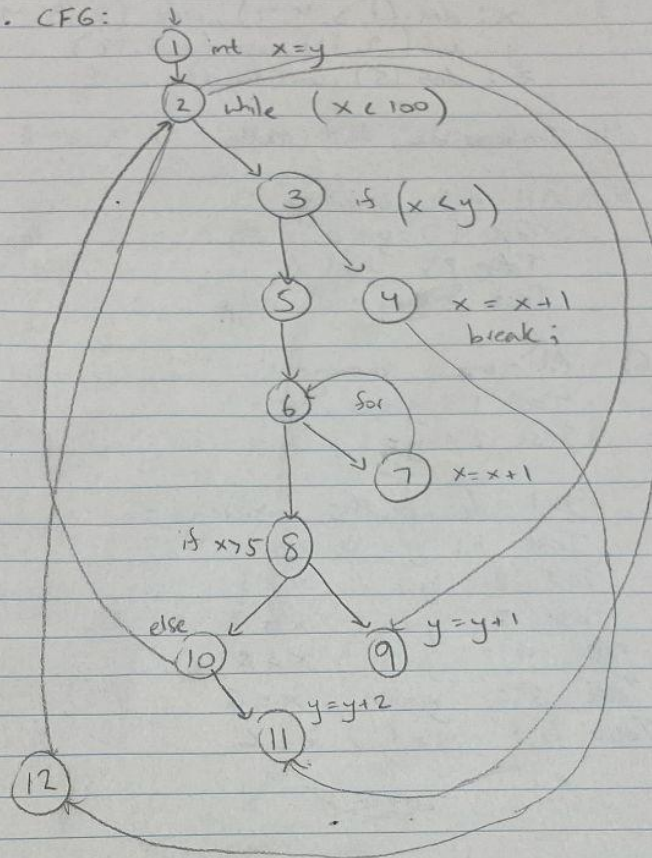 . CFG:
1 int x=y
2 while (x < 100)
3 if (x < y)
5 4 x = x+1
break;
6 for
7 x=x+1
if x>5 8
else
10 9 y=y+1
y=y+2
11
12